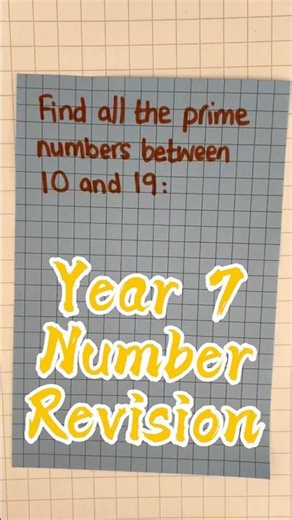 Find all the prime
numbers between
10 and 19:
Year 7
Number
Revision